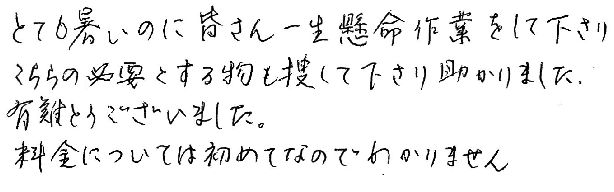 とても暑いのに皆さん一生懸命作業をして下さり
こちらの必要とする物も捜して下さり助かりました.
有難とうございました。
料金については初めてなのでわかりません